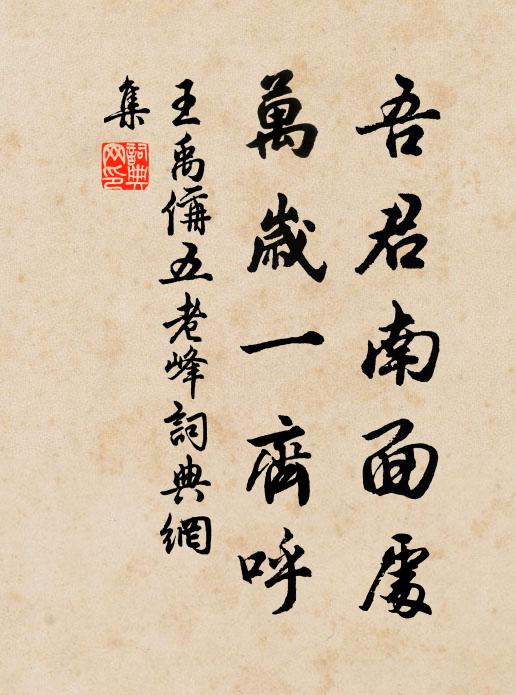 吾君南面處
萬歲一齊呼
王禹偁五老峰詞典網
集
詞典網印